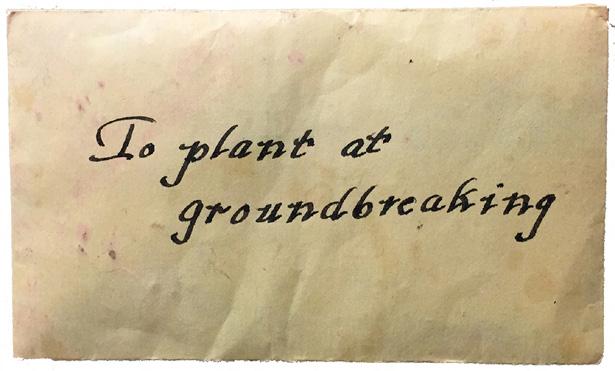 To plant at
groundbreaking